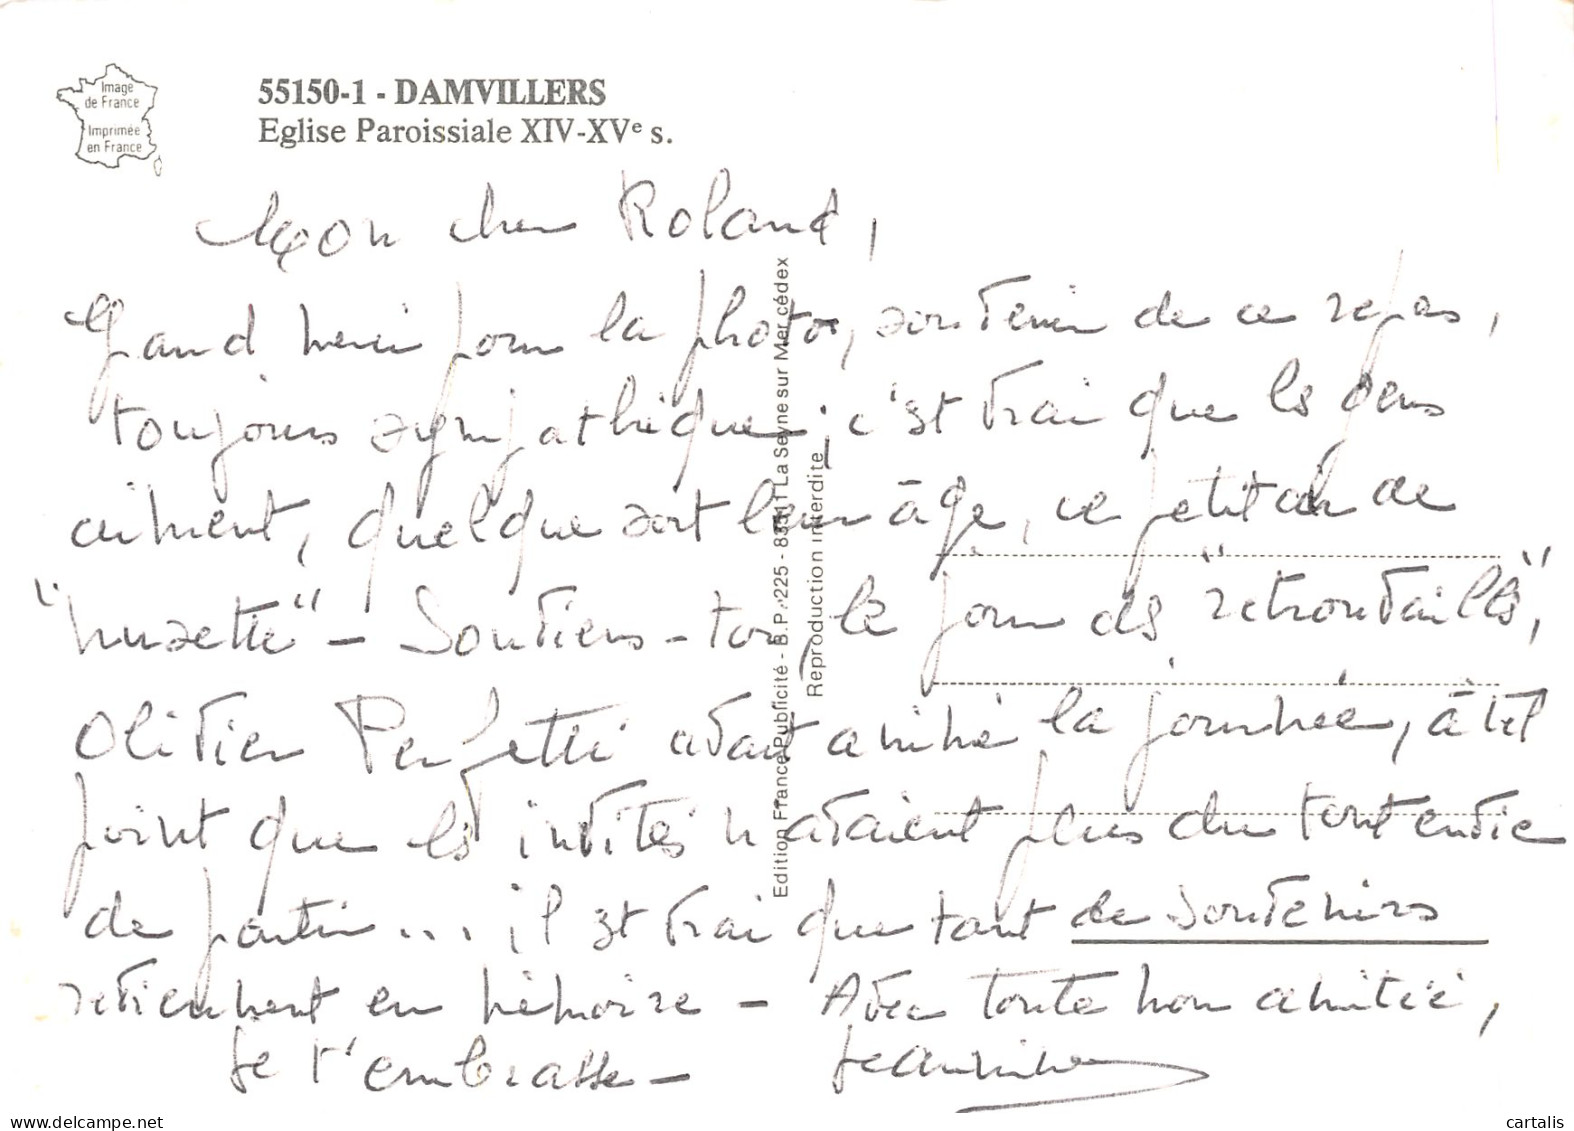 Image
de France
Imprimée
en France
55150-1 - DAMVILLERS
Eglise Paroissiale XIV-XVe s.
Mon cher Roland,
Grand merci pour la photo, souvenir de ce repas,
toujours sympathique ; c'est vrai que les gens
aiment, quelque soit leur âge, ce petit air de
"musette" - Souviens-toi, le jour des "retrouvailles",
Olivier Perfetti avait animé la journée, à tel
point que les invités n'avaient plus du tout envie
de partir... il est vrai que tant de souvenirs
reviennent en mémoire - Avec toute mon amitié,
Je t'embrasse - Jeannine
Edition France Publicité - B.P. 225 - 83511 La Seyne sur Mer cédex
Reproduction interdite
www.delcampe.net
cartalis